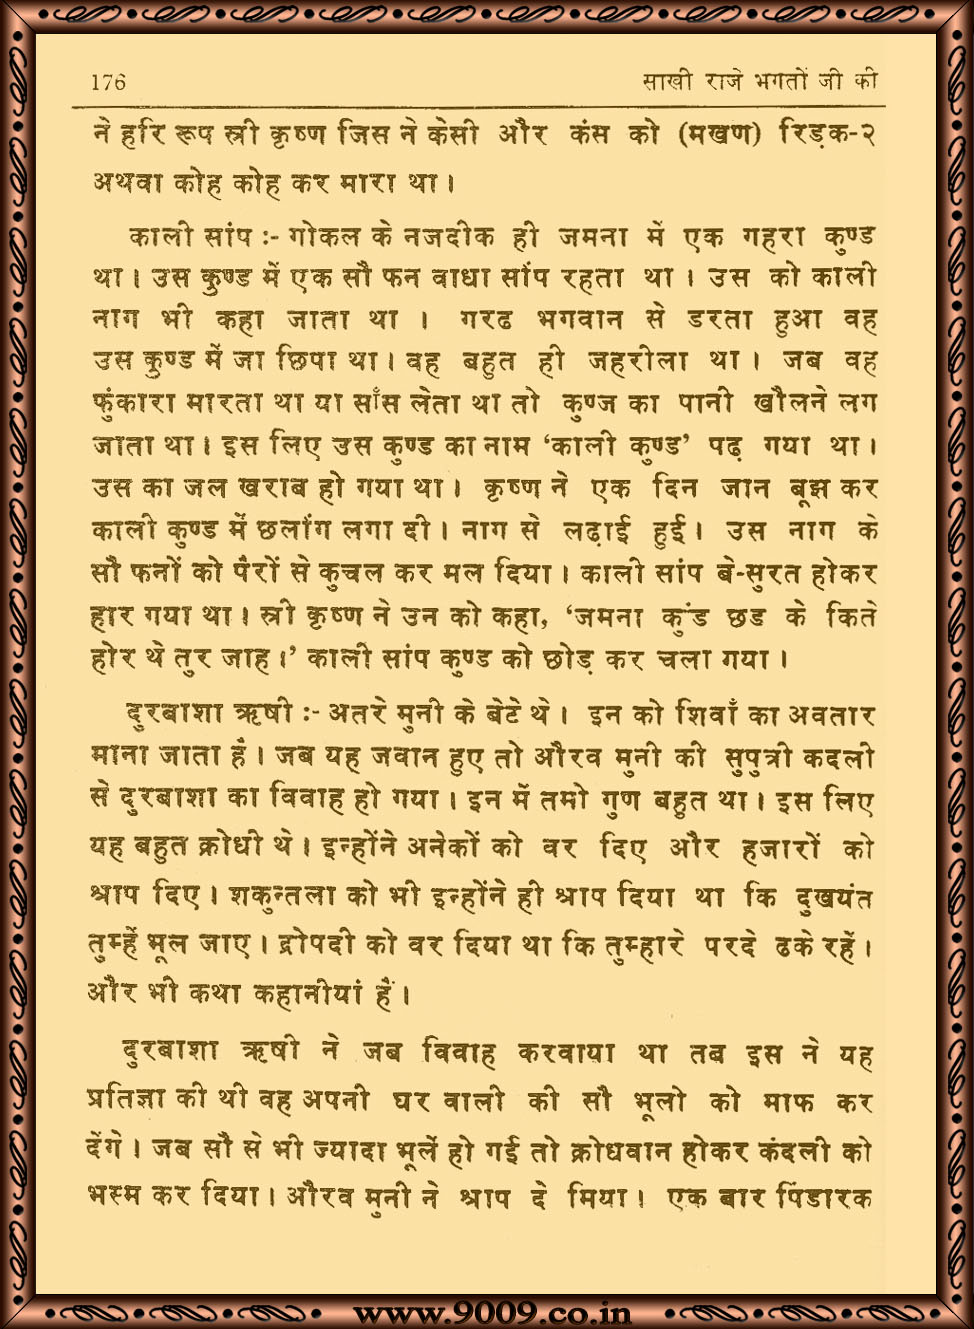 176 साखी राजे भगतों जी की
ने हरि रूप स्त्री कृष्ण जिस ने केसी और कंस को (मखण) रिड़क-२
अथवा कोह कोह कर मारा था।
काली सांप :- गोकल के नजदीक ही जमना में एक गहरा कुण्ड
था। उस कुण्ड में एक सौ फन वाधा सांप रहता था। उस को काली
नाग भी कहा जाता था । गरढ भगवान से डरता हुआ वह
उस कुण्ड में जा छिपा था। वह बहुत ही जहरीला था। जब वह
फुंकारा मारता था या साँस लेता था तो कुण्ज का पानी खौलने लग
जाता था। इस लिए उस कुण्ड का नाम ‘काली कुण्ड’ पढ़ गया था।
उस का जल खराब हो गया था। कृष्ण ने एक दिन जान बूझ कर
काली कुण्ड में छलांग लगा दी। नाग से लढ़ाई हुई। उस नाग के
सौ फनों को पैरों से कुचल कर मल दिया। काली सांप बे-सुरत होकर
हार गया था। स्त्री कृष्ण ने उन को कहा, ‘जमना कुंड छड के किते
होर थे तुर जाह।’ काली सांप कुण्ड को छोड़ कर चला गया।
दुरबाशा ऋषी :- अतरे मुनी के बेटे थे। इन को शिवाँ का अवतार
माना जाता है। जब यह जवान हुए तो औरव मुनी की सुपुत्री कदली
से दुरबाशा का विवाह हो गया। इन में तमो गुण बहुत था। इस लिए
यह बहुत क्रोधी थे। इन्होंने अनेकों को वर दिए और हजारों को
श्राप दिए। शकुन्तला को भी इन्होंने ही श्राप दिया था कि दुखयंत
तुम्हें भूल जाए। द्रोपदी को वर दिया था कि तुम्हारे परदे ढके रहें।
और भी कथा कहानीयां हैं।
दुरबाशा ऋषी ने जब विवाह करवाया था तब इस ने यह
प्रतिज्ञा की थी वह अपनी घर वाली की सौ भूलो को माफ कर
देंगे। जब सौ से भी ज्यादा भूलें हो गई तो क्रोधवान होकर कंदली को
भस्म कर दिया। औरव मुनी ने श्राप दे मिया। एक बार पिंडारक
www.9009.co.in